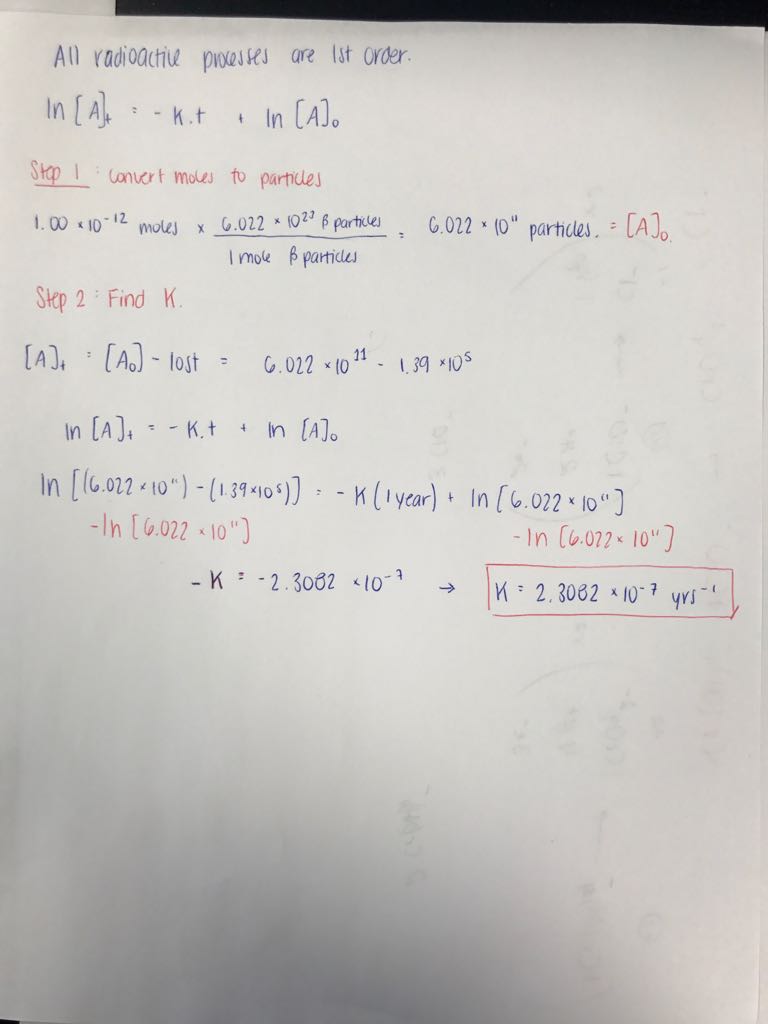 All radioactive processes are 1st order.
ln [A]t = - K.t + ln [A]₀
Step 1 : Convert moles to particles
1.00 × 10⁻¹² moles × 6.022 × 10²³ β particles / 1 mole β particles = 6.022 × 10¹¹ particles. = [A]₀.
Step 2 : Find K.
[A]t = [A₀] - lost = 6.022 × 10¹¹ - 1.39 × 10⁵
ln [A]t = - K.t + ln [A]₀
ln [(6.022 × 10¹¹) - (1.39 × 10⁵)] = - K (1 year) + ln [6.022 × 10¹¹]
-ln [6.022 × 10¹¹] -ln [6.022 × 10¹¹]
- K = -2.3082 × 10⁻⁷ → K = 2.3082 × 10⁻⁷ yrs⁻¹